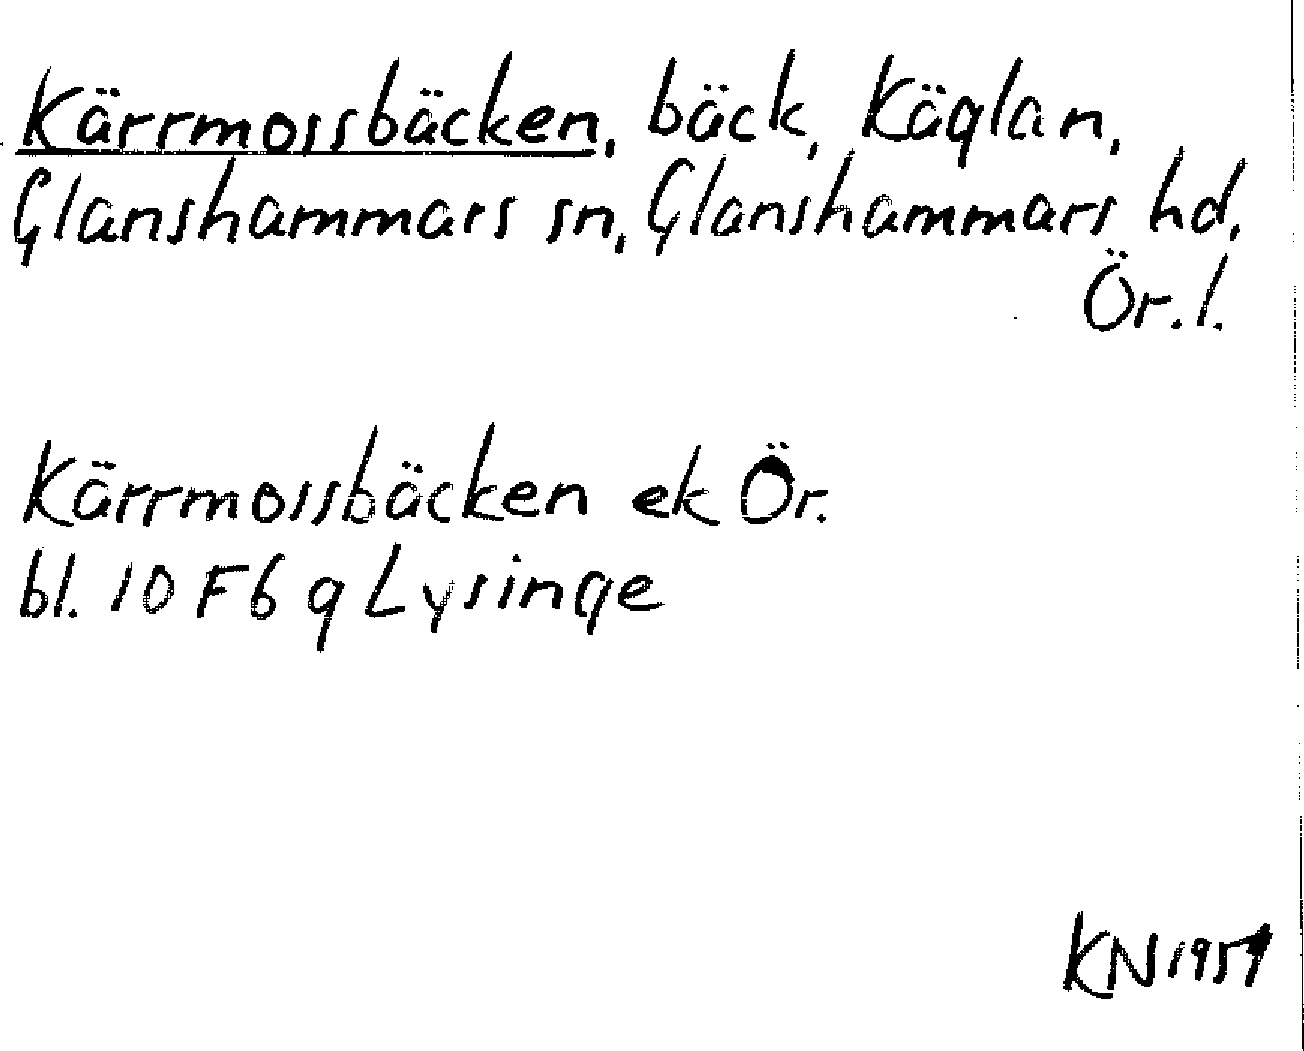 Kärrmossbäcken, bäck, Käglan,
Glanshammars sn, Glanshammars hd,
Ör. l.
Kärrmossbäcken ek Ör.
bl. 10 F 6 g Lysinge
KN